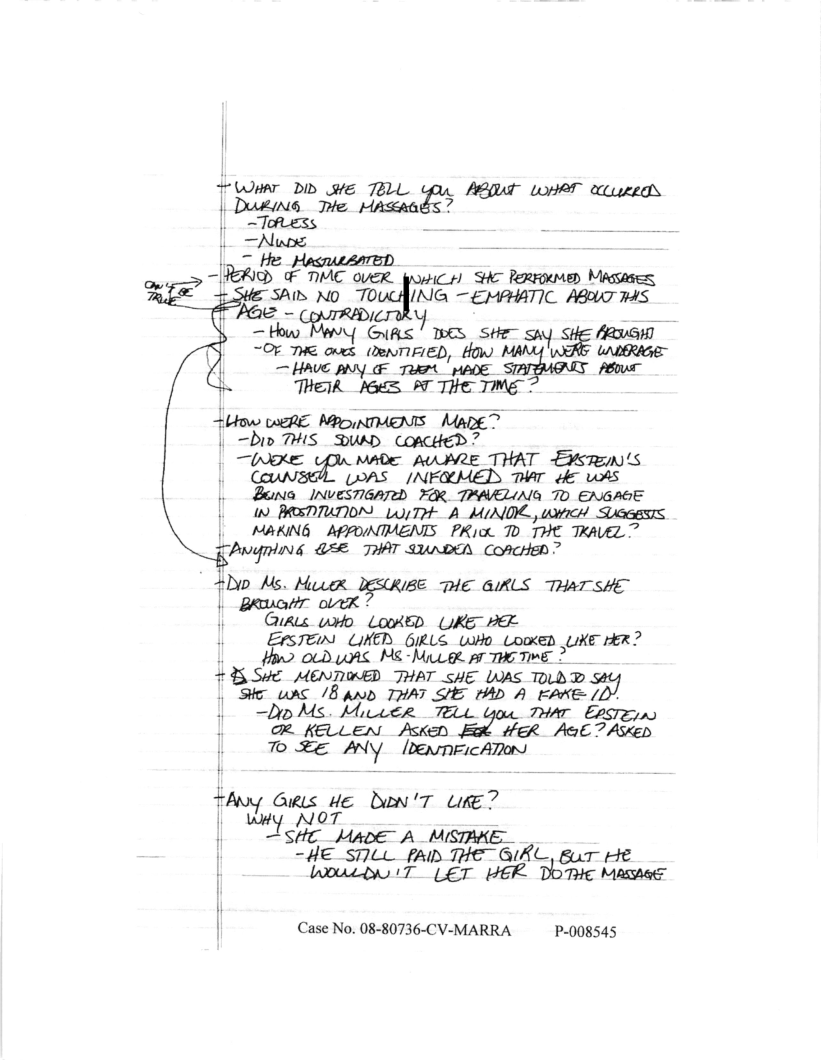 - WHAT DID SHE TELL YOU ABOUT WHAT OCCURRED
DURING THE MASSAGES?
- TOPLESS
- NUDE
- HE MASTURBATED
- PERIOD OF TIME OVER WHICH SHE PERFORMED MASSAGES
CAN'T BE
TRUE
- SHE SAID NO TOUCHING - EMPHATIC ABOUT THIS
AGE - CONTRADICTORY
- HOW MANY GIRLS DOES SHE SAY SHE BROUGHT
- OF THE ONES IDENTIFIED, HOW MANY WERE UNDERAGE
- HAVE ANY OF THEM MADE STATEMENTS ABOUT
THEIR AGES AT THE TIME?
- HOW WERE APPOINTMENTS MADE?
- DID THIS SOUND COACHED?
- WERE YOU MADE AWARE THAT EPSTEIN'S
COUNSEL WAS INFORMED THAT HE WAS
BEING INVESTIGATED FOR TRAVELING TO ENGAGE
IN PROSTITUTION WITH A MINOR, WHICH SUGGESTS
MAKING APPOINTMENTS PRIOR TO THE TRAVEL?
- ANYTHING ELSE THAT SOUNDED COACHED?
- DID MS. MILLER DESCRIBE THE GIRLS THAT SHE
BROUGHT OVER?
GIRLS WHO LOOKED LIKE HER
EPSTEIN LIKED GIRLS WHO LOOKED LIKE HER?
HOW OLD WAS MS. MILLER AT THE TIME?
- SHE MENTIONED THAT SHE WAS TOLD TO SAY
SHE WAS 18 AND THAT SHE HAD A FAKE ID.
- DID MS. MILLER TELL YOU THAT EPSTEIN
OR KELLEN ASKED HER AGE? ASKED
TO SEE ANY IDENTIFICATION
- ANY GIRLS HE DIDN'T LIKE?
WHY NOT
- SHE MADE A MISTAKE
- HE STILL PAID THE GIRL, BUT HE
WOULDN'T LET HER DO THE MASSAGE
Case No. 08-80736-CV-MARRA P-008545